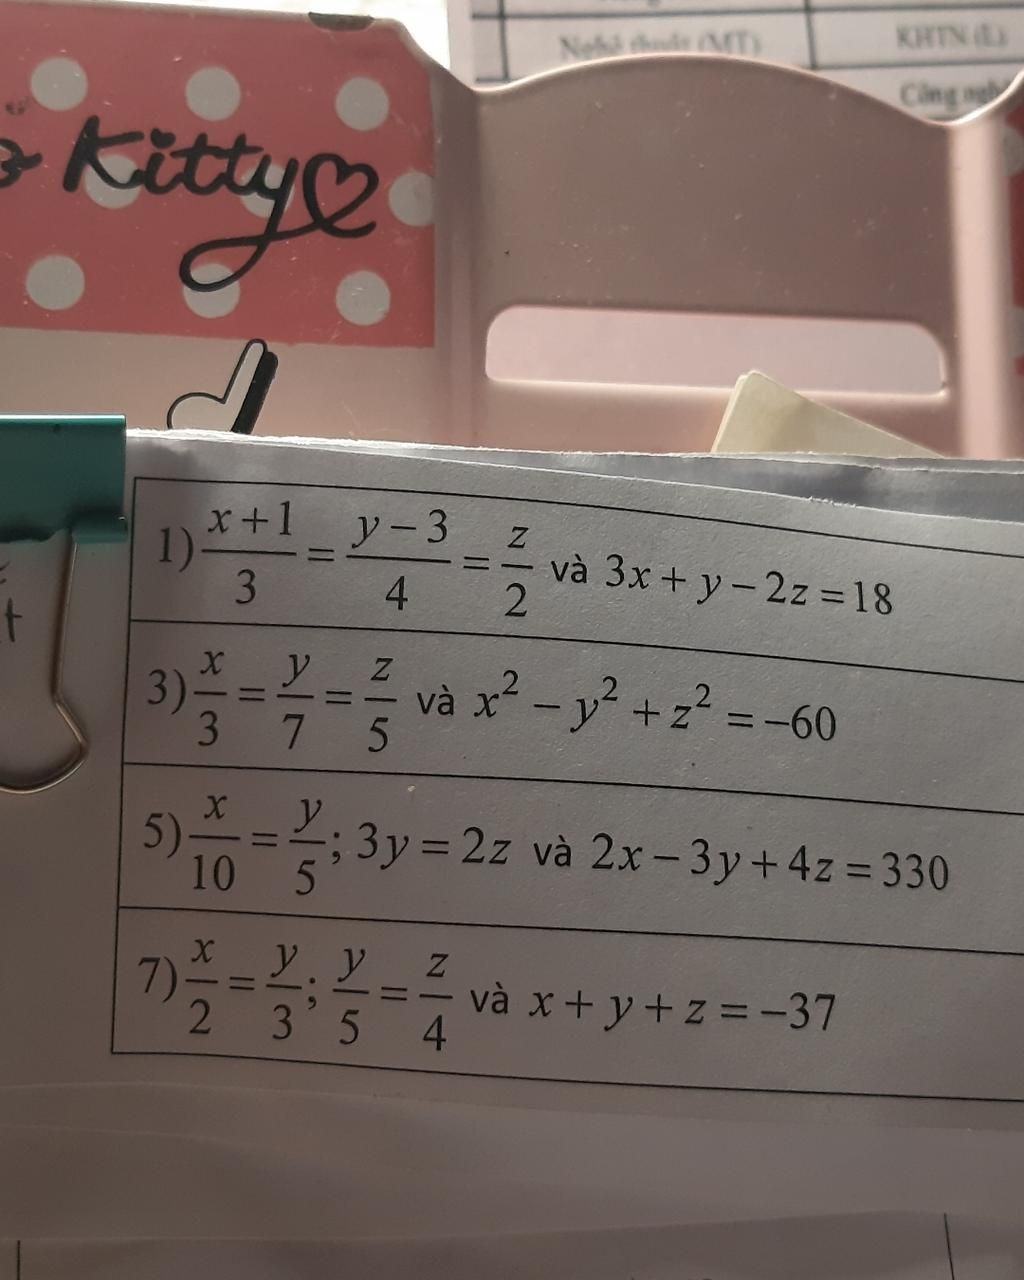 Nghệ thuật (MT) KHTN (L)
Công nghệ
Kitty
1) \frac{x+1}{3} = \frac{y-3}{4} = \frac{z}{2} và 3x + y − 2z = 18
3) \frac{x}{3} = \frac{y}{7} = \frac{z}{5} và x² − y² + z² = −60
5) \frac{x}{10} = \frac{y}{5}; 3y = 2z và 2x − 3y + 4z = 330
7) \frac{x}{2} = \frac{y}{3}; \frac{y}{5} = \frac{z}{4} và x + y + z = −37